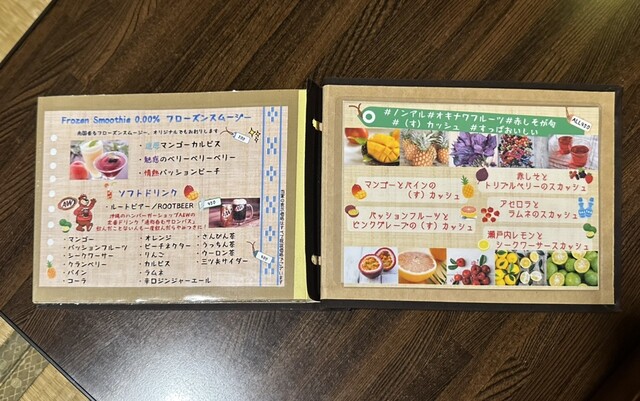 Frozen Smoothie 0.00% フローズンスムージー
南国香るフローズンスムージー、オリジナルでもお作りします
・琉恋マンゴーカルピス
・魅惑のベリーベリーベリー
・情熱パッションピーチ
ソフトドリンク
・ルートビアー/ROOTBEER
沖縄のハンバーガーショップA&Wの
飲んだことない人も一度飲んだらやみつきに!
・マンゴー
・パッションフルーツ
・シークワーサー
・クランベリー
・パイン
・コーラ
・オレンジ
・ピーチネクター
・りんご
・カルピス
・ラムネ
・辛口ジンジャーエール
・さんぴん茶
・うっちん茶
・ウーロン茶
・三ツ矢サイダー
#ノンアル#オキナワフルーツ#赤しそが旬
#(す)カッシュ #すっぱおいしい
ALL450
マンゴーとパインの
(す)カッシュ
パッションフルーツと
ピンクグレープの(す)カッシュ
赤しそと
トリプルベリーのスカッシュ
アセロラと
ラムネのスカッシュ
瀬戸内レモンと
シークワーサースカッシュ